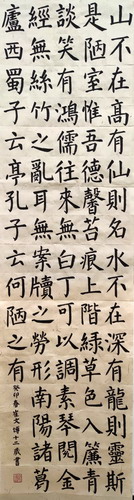 山不在高有仙則名水不在深有龍則靈斯
是陋室惟吾德馨苔痕上階綠草色入簾青
談笑有鴻儒往來無白丁可以調素琴閱金
經無絲竹之亂耳無案牘之勞形南陽諸葛
廬西蜀子云亭孔子云何陋之有
癸卯春崔文博十二歲書